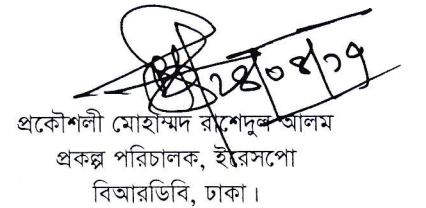 ২৪/০৪/১৭
প্রকৌশলী মোহাম্মদ রাশেদুল আলম
প্রকল্প পরিচালক, ইরেসপো
বিআরডিবি, ঢাকা।